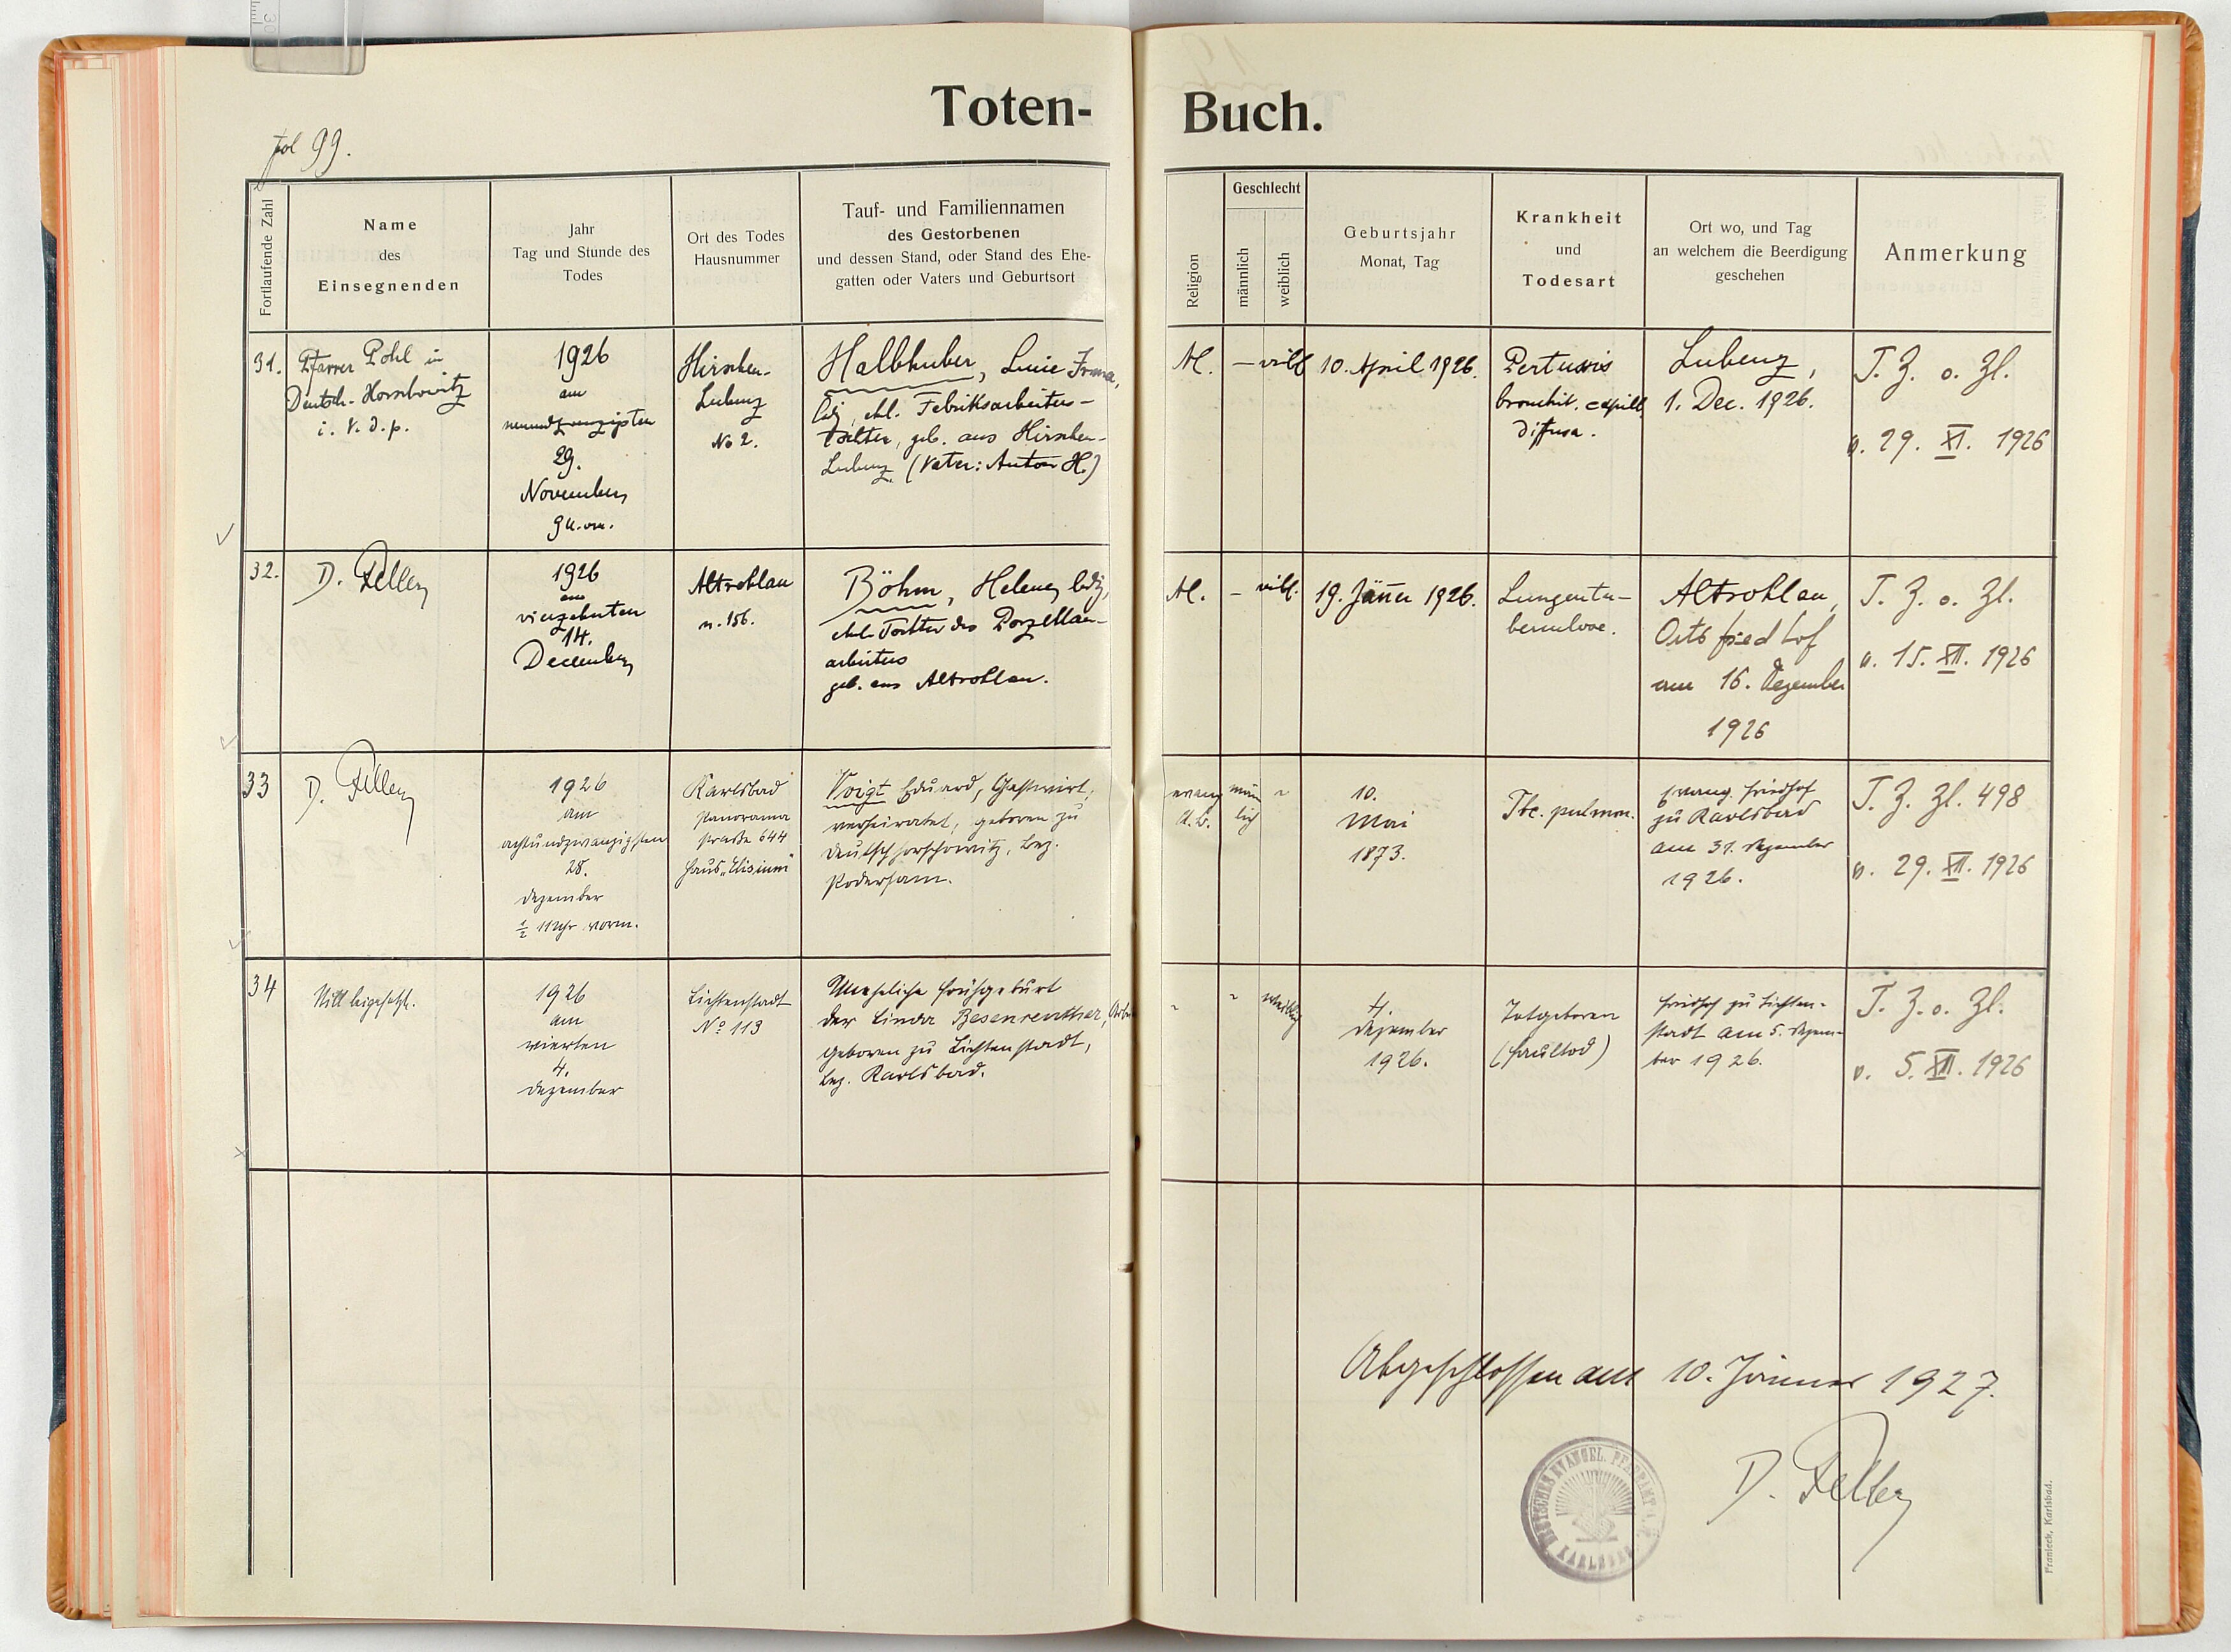 Toten- Buch.
fol 99.
Fortlaufende Zahl
Name
des
Einsegnenden
Jahr
Tag und Stunde des
Todes
Ort des Todes
Hausnummer
Tauf- und Familiennamen
des Gestorbenen
und dessen Stand, oder Stand des Ehe-
gatten oder Vaters und Geburtsort
Religion
Geschlecht
männlich
weiblich
Geburtsjahr
Monat, Tag
Krankheit
und
Todesart
Ort wo, und Tag
an welchem die Beerdigung
geschehen
Anmerkung
31.
Pfarrer Pohl in
Deutsch-Horschowitz
i. V. d. p.
1926
am
neunundzwanzigsten
29.
November
9 u. vm.
Hirschen-
Lubenz
No 2.
Halbhuber, Luise Irma,
ledig, ehl. Fabriksarbeiters-
tochter, geb. aus Hirschen-
Lubenz (Vater: Anton H.)
A.
—
weibl
10. April 1926.
Pertussis
bronchit. capill.
diffusa.
Lubenz,
1. Dec. 1926.
T. Z. o. Zl.
v. 29. XI. 1926
32.
D. Feller
1926
am
vierzehnten
14.
December
Altrohlau
n. 156.
Böhm, Helene, ledig,
ehel. Tochter des Porzellan-
arbeiters
geb. aus Altrohlau.
A.
—
weibl.
19. Jänner 1926.
Lungentu-
berculose.
Altrohlau,
Ortsfriedhof
am 16. Dezember
1926
T. Z. o. Zl.
v. 15. XII. 1926
33
D. Feller
1926
am
achtundzwanzigsten
28.
Dezember
½ 11 Uhr vorm.
Karlsbad
Panorama
straße 644
Haus „Elisium"
Voigt Eduard, Gastwirt,
verheiratet, geboren zu
Deutschhorschowitz, Bez.
Podersam.
evang
A.B.
männ
lich
10.
Mai
1873.
Tbc. pulmon.
Evang. Friedhof
zu Karlsbad
am 31. Dezember
1926.
T. Z. Zl. 498
v. 29. XII. 1926
34
Still beigesetzt.
1926
am
vierten
4.
Dezember
Lichtenstadt
No 113
Uneheliche Frühgeburt
der Linda Besenreuther,
geboren zu Lichtenstadt,
Bez. Karlsbad.
weiblich
4.
Dezember
1926.
Totgeboren
(Faultod)
Friedhof zu Lichten-
stadt am 5. Dezem-
ber 1926.
T. Z. o. Zl.
v. 5. XII. 1926
Abgeschlossen am 10. Jänner 1927.
D. Feller
DEUTSCHES EVANGEL. PFARRAMT A.B. KARLSBAD
Franieck, Karlsbad.